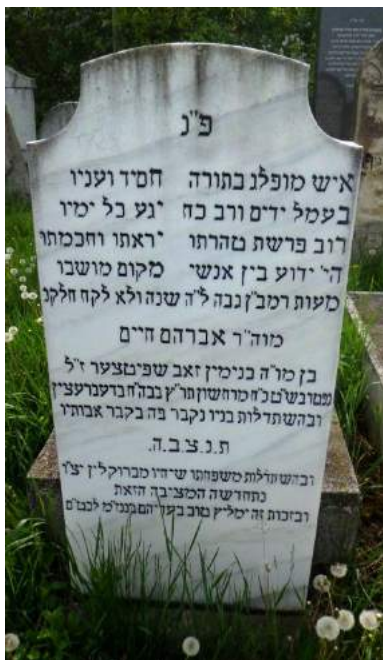 פ"נ
איש מופלג בתורה חסיד ועניו
בעמל ידים ורב כח יגע כל ימיו
רוב פרשת טהרתו יראתו וחכמתו
הי' ידוע בין אנשי מקום מושבו
מעות רמב"ן גבה ל"ה שנה ולא לקח חלקו
מוה"ר אברהם חיים
בן מו"ה בנימין זאב שפיטצער ז"ל
נפטר בש"ט כ"ח מרחשון תר"ץ בבה"ח בדעברעצין
ובהשתדלות בניו נקבר פה בקבר אבותיו
ת.נ.צ.ב.ה.
ובהשתדלות משפחתו שיחיו מברוקלין יצ"ו
נתחדשה המציבה הזאת
ובזכות זה ימליץ טוב בעדיהם